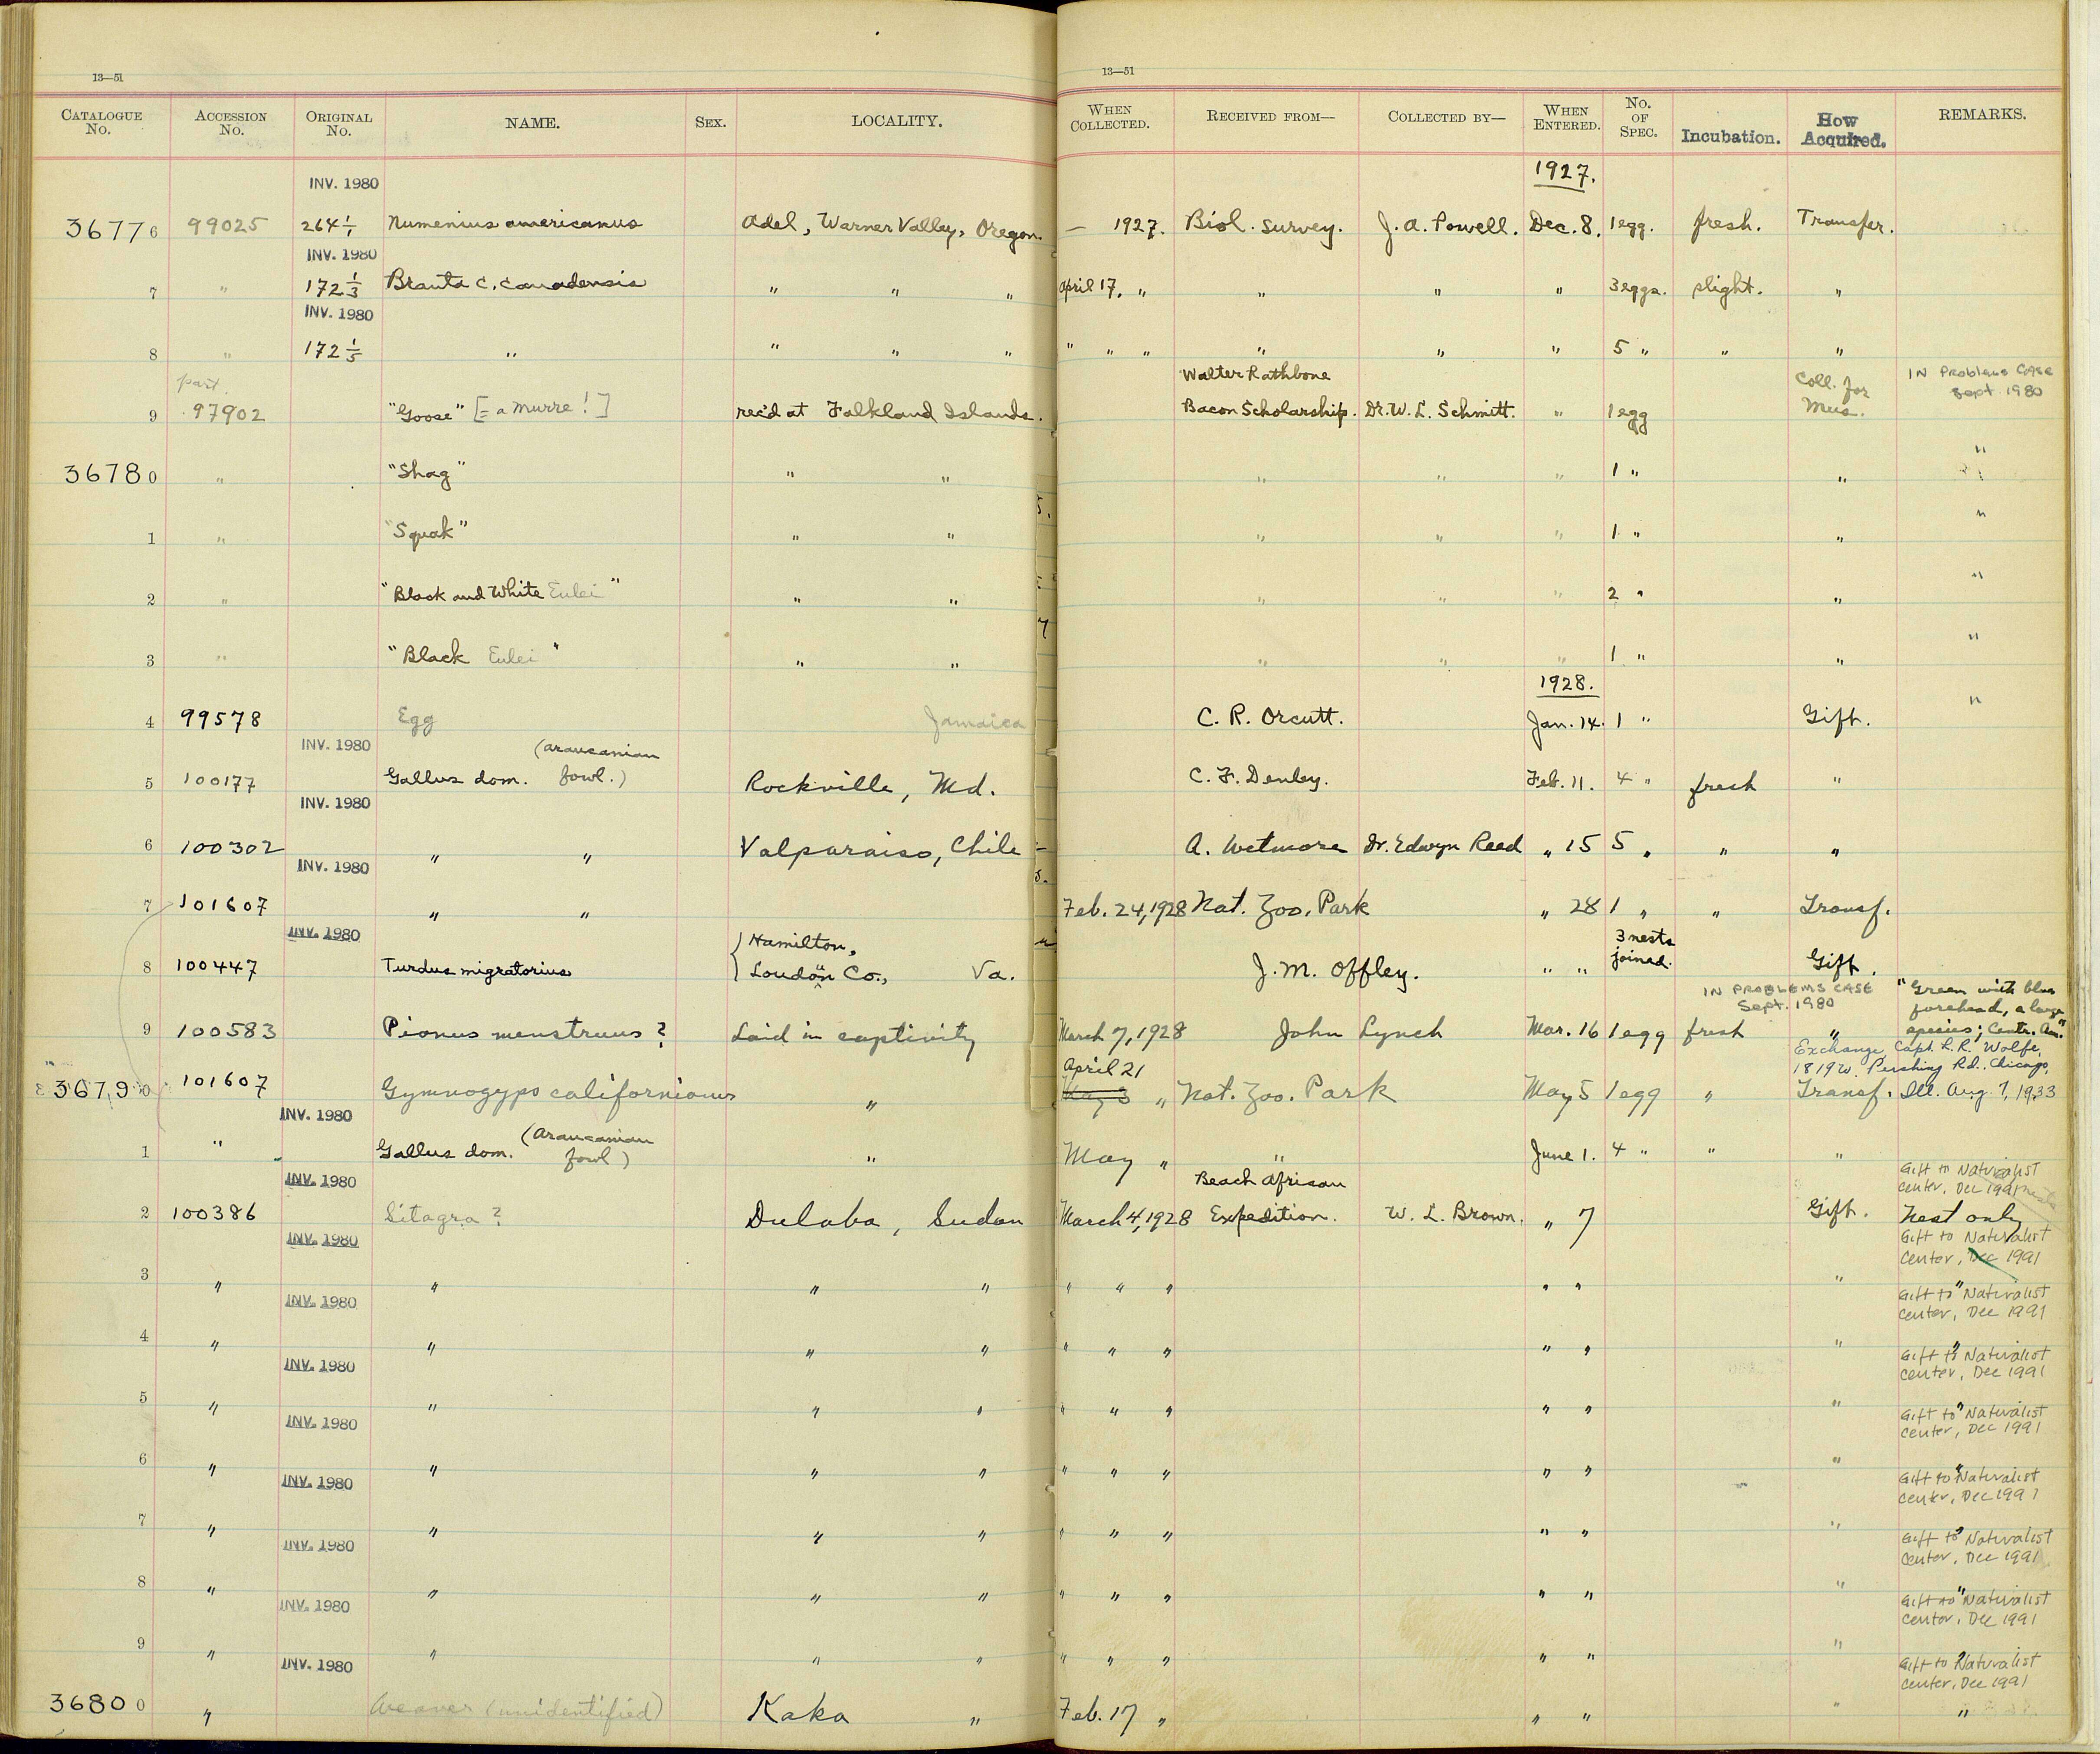 13—51
13—51
CATALOGUE No. ACCESSION No. ORIGINAL No. NAME. SEX. LOCALITY. WHEN COLLECTED. RECEIVED FROM— COLLECTED BY— WHEN ENTERED. No. OF SPEC. Incubation. How Acquired. REMARKS.
1927.
INV. 1980
36776 99025 264 1/1 Numenius americanus Adel, Warner Valley, Oregon. — 1927. Biol. Survey. J. A. Powell. Dec. 8. 1 egg. fresh. Transfer.
INV. 1980
7 " 172 1/3 Branta c. canadensis " " " April 17. " " " " 3 eggs. slight. "
INV. 1980
8 " 172 1/5 " " " " " " " " " " 5 " " "
part Walter Rathbone Coll. for IN Problems Case
9 97902 "Goose" [= a murre!] rec'd at Falkland Islands. Bacon Scholarship. Dr. W. L. Schmitt. " 1 egg Mus. Sept 1980
36780 " "Shag" " " " " " 1 " " "
1 " "Squak" " " " " " 1 " " "
2 " "Black and White Eulei" " " " " " 2 " " "
3 " "Black Eulei" " " " " " 1 " " "
1928.
4 99578 Egg Jamaica C. R. Orcutt. Jan. 14. 1 " Gift. "
INV. 1980 (Araucanian
5 100177 Gallus dom. fowl.) Rockville, Md. C. F. Denley. Feb. 11. 4 " fresh "
INV. 1980
6 100302 " " Valparaiso, Chile A. Wetmore Dr. Edwyn Reed " 15 5 " " "
INV. 1980
7 101607 " " Feb. 24, 1928 Nat. Zoo. Park " 28 1 " " Transf.
INV. 1980 Hamilton, 3 nests
8 100447 Turdus migratorius Loudoun Co., Va. J. M. Offley. " " joined. Gift.
IN PROBLEMS CASE "Green with blue
Sept. 1980 forehead, a large
9 100583 Pionus menstruus ? Laid in captivity March 7, 1928 John Lynch Mar. 16 1 egg fresh " species; Centr. Am."
Exchange Capt. L. R. Wolfe,
April 21 1819 W. Pershing Rd., Chicago,
36790 101607 Gymnogyps californianus " May 3 " Nat. Zoo. Park May 5 1 egg " Transf. Ill. Aug. 7, 1933
INV. 1980 (Araucanian
1 " Gallus dom. fowl) " May " " June 1. 4 " " "
INV. 1980 Beach African Gift to Naturalist
Center, Dec 1991
2 100386 Sitagra ? Dulaba, Sudan March 4, 1928 Expedition. W. L. Brown. " 7 Gift. Nest only
INV. 1980 Gift to Naturalist
Center, Dec 1991
3 " " " " " " " " " " "
INV. 1980 Gift to Naturalist
Center, Dec 1991
4 " " " " " " " " " " "
INV. 1980 Gift to Naturalist
Center, Dec 1991
5 " " " " " " " " " " "
INV. 1980 Gift to Naturalist
Center, Dec 1991
6 " " " " " " " " " " "
INV. 1980 Gift to Naturalist
Center, Dec 1991
7 " " " " " " " " " "
INV. 1980 Gift to Naturalist
Center, Dec 1991
8 " " " " " " " " " " "
INV. 1980 Gift to Naturalist
Center, Dec 1991
9 " " " " " " " " " " "
INV. 1980 Gift to Naturalist
Center, Dec 1991
36800 " Weaver (unidentified) Kaka " Feb. 17 " " " " "